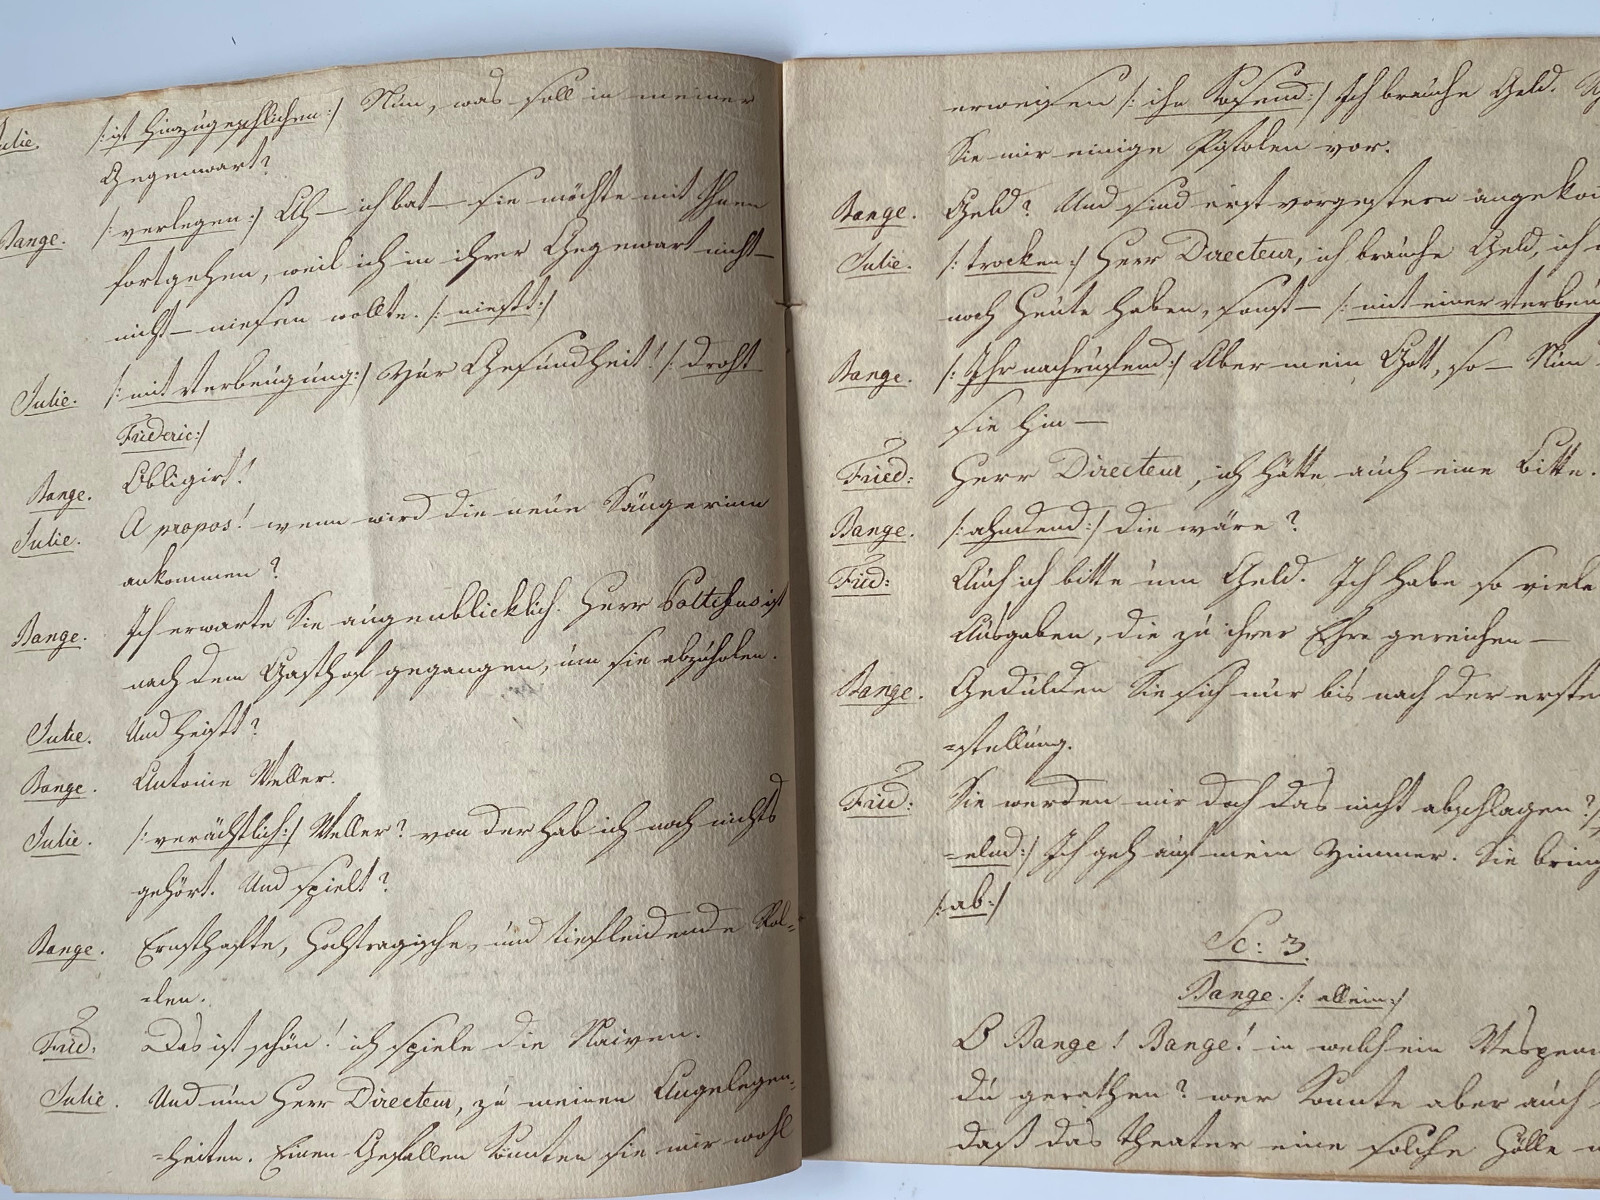 Julie. /: ist hinzugeschlichen :/ Nun, was soll in meiner
Gegenwart?
Bange. /: verlegen :/ Ah — ich bat — sie möchte mit Ihnen
fortgehen, weil ich in ihrer Gegenwart nicht —
nicht — niesen wollte. /: niest :/
Julie. /: mit Verbeugung :/ Zur Gesundheit! /: droht
Friederic :/
Bange. Obligirt!
Julie. A propos! wenn wird die neue Sängerinn
ankommen?
Bange. Ich erwarte Sie augenblicklich. Herr ist
nach dem Gasthof gegangen, um sie abzuholen.
Julie. Und heißt?
Bange. Antonie Weller.
Julie. /: verächtlich :/ Weller? von der hab ich noch nichts
gehört. Und spielt?
Bange. Ernsthafte, hochtragische, und tiefleidende Rol=
=len.
Fried: Das ist schön! ich spiele die Naiven.
Julie. Und nun Herr Directeur, zu meinen Angelegen=
=heiten. Einen Gefallen könnten sie mir wohl
erweisen /: ihn kosend :/ Ich brauche Geld.
Sie mir einige Pistolen vor.
Bange. Geld? Und sind erst vorgestern
Julie. /: trocken :/ Herr Directeur, ich brauche Geld, ich
noch Heute haben, sonst — /: mit einer
Bange. /: Ihr nachrufend :/ Aber mein Gott, so — Nun
sie hin —
Fried: Herr Directeur, ich hätte auch eine Bitte.
Bange. /: ahndend :/ die wäre?
Fried: Auch ich bitte um Geld. Ich habe so viele
Ausgaben, die zu ihrer Ehre gereichen —
Bange. Gedulden Sie sich nur bis nach der
=stellung.
Fried: Sie werden mir doch das nicht abschlagen? /:
=elnd :/ Ich geh auf mein Zimmer. Sie
/: ab :/
Sc: 3.
Bange. /: allein :/
O Bange! Bange! in welch ein
du gerathen? wer konnte aber auch
daß das Theater eine solche Hölle